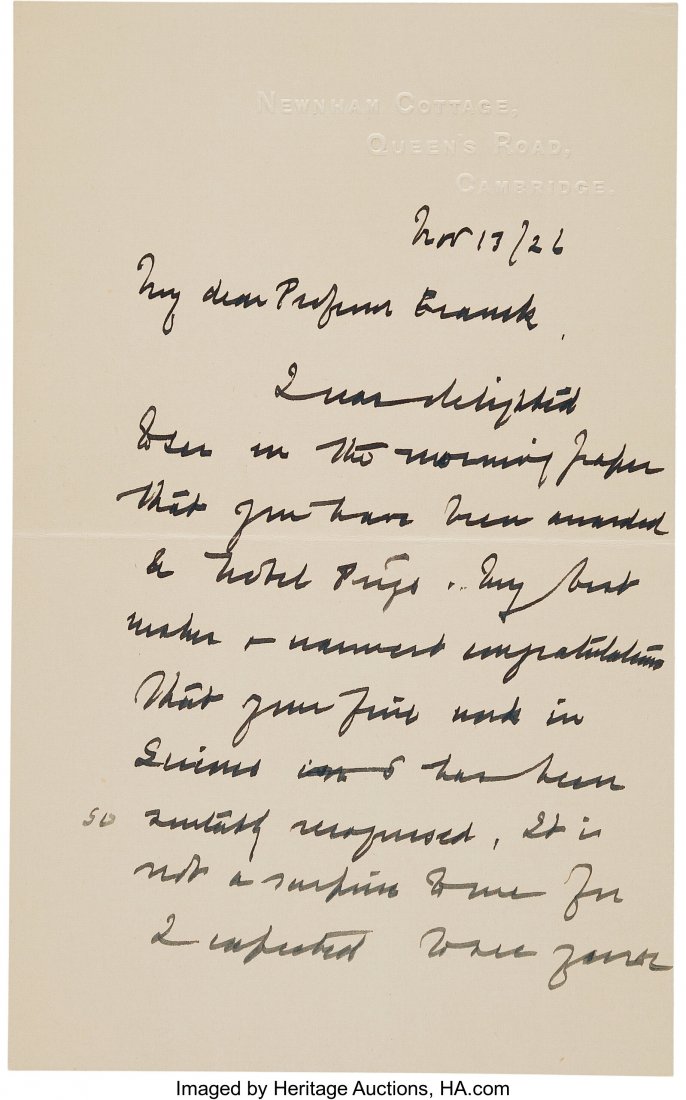 NEWNHAM COTTAGE,
QUEEN'S ROAD,
CAMBRIDGE.
Nov 13/26
My dear Professor Franck
I was delighted
to see in the morning paper
that you have been awarded
a Nobel Prize. My best
wishes & warmest congratulations
that your fine work in
Science has been
so suitably recognised. It is
not a surprise to me for
I expected to see your
Imaged by Heritage Auctions, HA.com